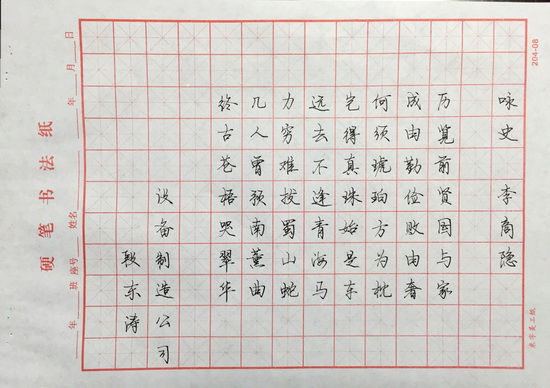 204-08
咏史 李商隐
历览前贤国与家
成由勤俭败由奢
何须琥珀方为枕
岂得真珠始是车
远去不逢青海马
力穷难拔蜀山蛇
几人曾预南薰曲
终古苍梧哭翠华
设备制造公司
东涛
硬笔书法纸
年 班 座号 姓名 年 月 日